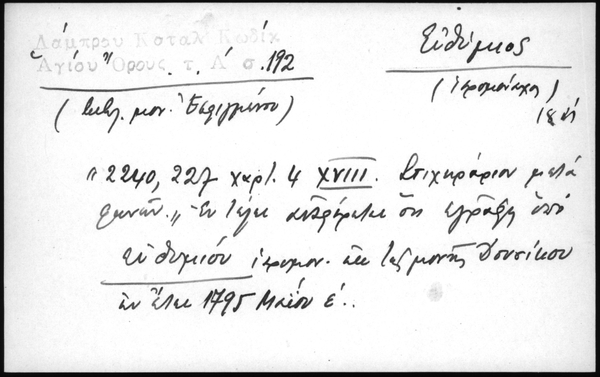 Λάμπρου Καταλ Κωδίκ
Ἁγίου Ὄρους. τ. Α΄ σ. 192
Εὐθύμιος
(Βιβλ. μον. Ἐσφιγμένου)
(ἱερομόναχος)
"2240, 227 χαρτ. 4 XVIII. Στιχηράριον μετὰ
φωνῶν.„ Ἐν τέλει ἀναφέρεται ὅτι ἐγράφη ὑπὸ
Εὐθυμίου ἱερομον. ἐκ τῆς μονῆς Δουσίκου
ἐν ἔτει 1795 Μαΐου ε΄..